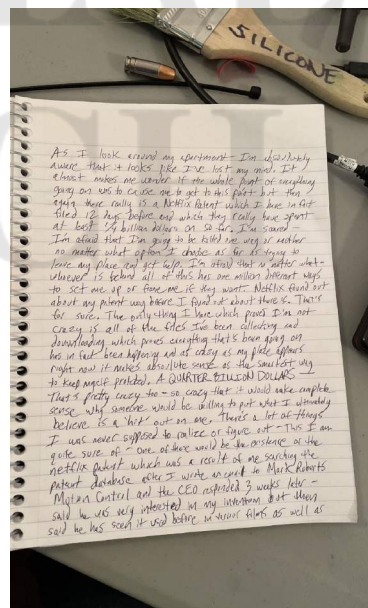 SILICONE
As I look around my apartment I'm absolutely
aware that it looks like I've lost my mind. It
almost makes me wonder if the whole point of everything
going on was to cause me to get to this point but then
again there really is a Netflix Patent which I have in fact
filed 12 days before and which they really have spent
at least 1/4 billion dollars on so far. I'm scared -
I'm afraid that I'm going to be killed one way or another
no matter what option I choose as far as trying to
leave my place and get help. I'm afraid that no matter what -
whoever is behind all of this has one million different ways
to set me up or frame me if they want. Netflix found out
about my patent way before I found out about there's. That's
for sure. The only thing I have which proves I'm not
crazy is all of the files I've been collecting and
downloading which proves everything that's been going on
has in fact been happening and as crazy as my place appears
right now it makes absolute sense as the smartest way
to keep myself protected. A QUARTER BILLION DOLLARS
That's pretty crazy too - so crazy that it would make complete
sense why someone would be willing to put what I ultimately
believe is a "hit" out on me. There's a lot of things
I was never supposed to realize or figure out - This I am
quite sure of - One of those would be the existence of the
netflix patent which was a result of me searching the
patent database after I wrote an email to Mark Roberts
Motion Control and the CEO responded 3 weeks later -
said he was very interested in my invention but then
said he has seen it used before in various films as well as